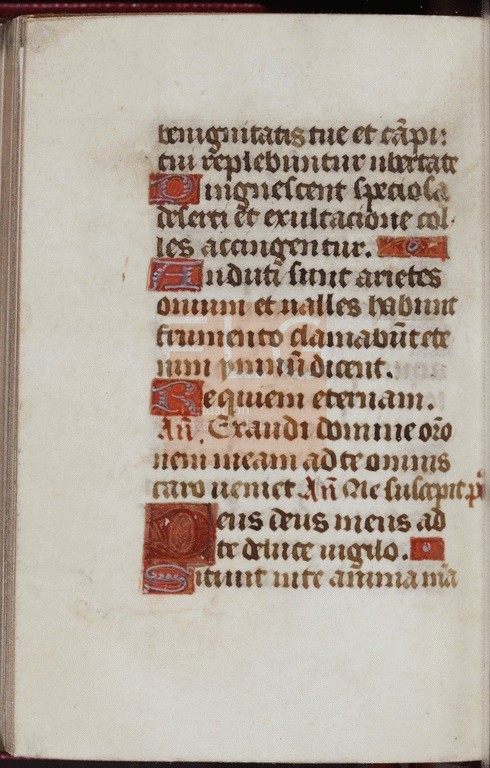 benignitatis tue et cãpi:
tui replebuntur ubertate
Pinguescent speciosa
deserti et exultacione col-
les accingentur.
Induti sunt arietes
ouium et ualles habunt
frumento clamabũt ete
nim ymnũ dicent.
Requiem eternam.
Añ. Exaudi domine oro
nem meam ad te omnis
caro ueniet Añ Me suscepit. ps
Deus deus meus ad
te de luce uigilo.
Sitiuit in te anima m̃a